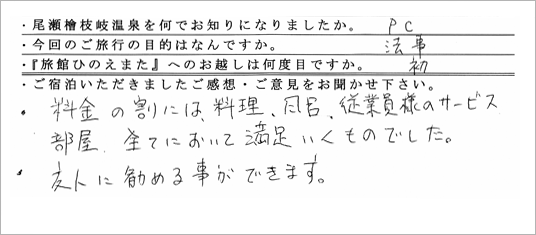 ・尾瀬檜枝岐温泉を何でお知りになりましたか。 PC
・今回のご旅行の目的はなんですか。 法事
・『旅館ひのえまた』へのお越しは何度目ですか。 初
・ご宿泊いただきましたご感想・ご意見をお聞かせ下さい。
・料金の割には、料理、風呂、従業員様のサービス
部屋、全てにおいて満足いくものでした。
・友人に勧める事ができます。